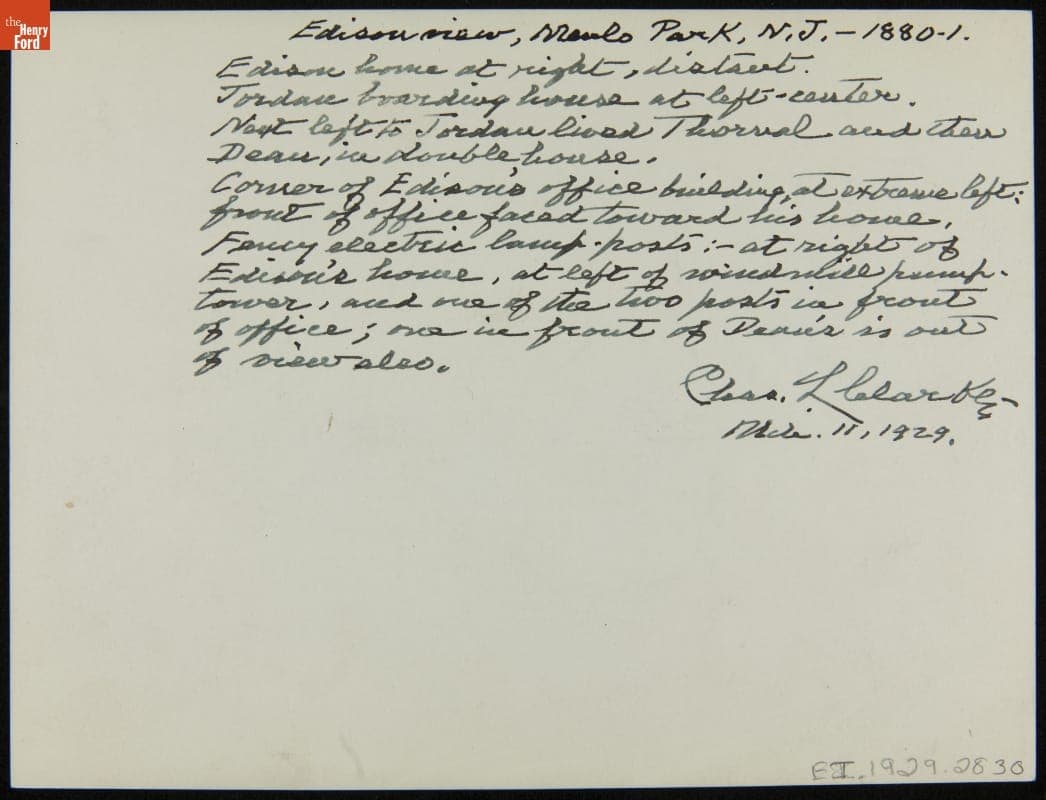 the
Henry
Ford
Edison view, Menlo Park, N.J. - 1880-1.
Edison home at right, distant.
Jordan boarding house at left-center.
Next left to Jordan lived Thornal and then
Dean, in double house.
Corner of Edison's office building, at extreme left:
front of office faced toward his home.
Fancy electric lamp-posts:- at right of
Edison's home, at left of windmill pump-
tower, and one of the two posts in front
of office; one in front of Dean's is out
of view also.
Chas. L Clarke-
11, 1929.
EI.1929.2830